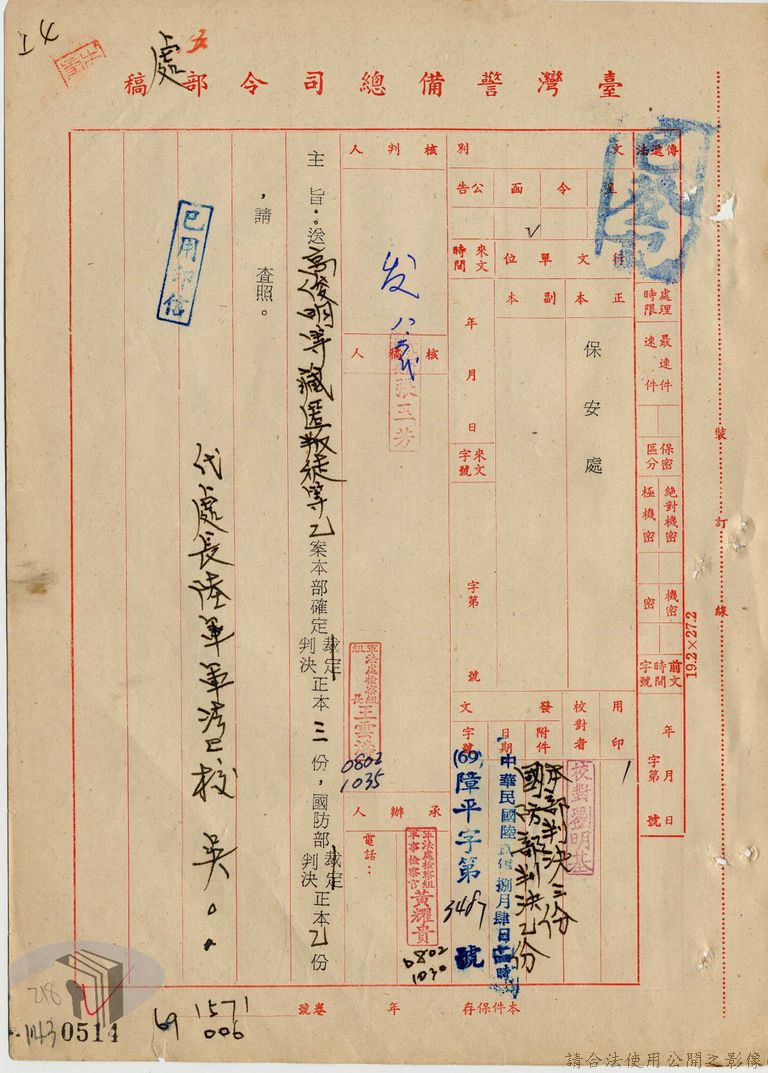 14
處
臺灣警備總司令部稿
傳遞法
處理時限
最速件
速件
保密區分
絕對機密
極機密
機密
密
前文時間字號
年月日
字第號
文別
令
函
公告
行文單位
正本
副本
保安處
來文時間
年月日
來文字號
字第號
用印
校對者
校對劉明基
發文
附件
本部判決三份
國防部判決乙份
日期
中華民國陸拾玖年捌月肆日
字號
(69)障平字第3487號
核判人
发
核稿人
張玉芳
軍法處檢察組組長王雲濤
0802
1035
承辦人
電話：
軍法處檢察組軍事檢察官黃耀貴
0802
1030
主旨：送高俊明等藏匿叛徒等乙案本部確定裁定判決正本三份，國防部裁定判決正本乙份
，請 查照。
已用印信
代處長陸軍軍法上校 吳
裝訂線
19.2×27.2
本件保存
年
卷號
1571
006
69
218
1143
0514
請合法使用公開之影像